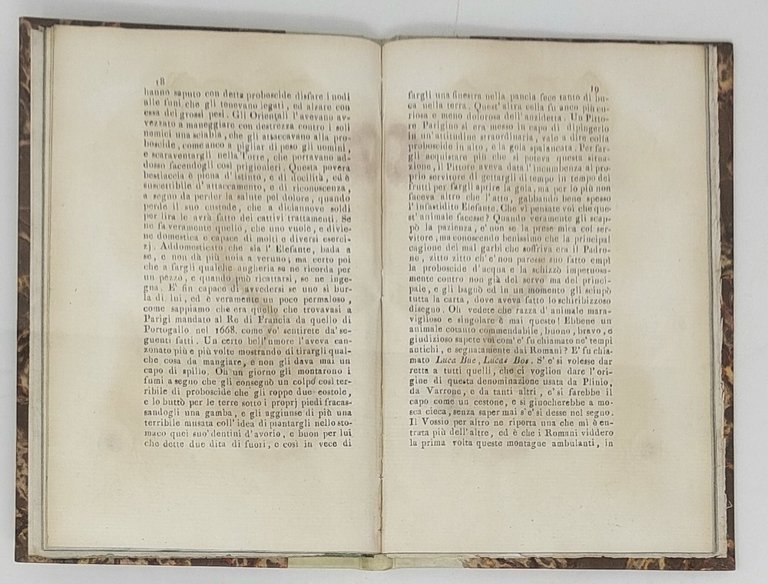 18
hanno saputo con detta proboscide disfare i nodi
alle funi che gli tenevano legati, ed alzare con
essa dei grossi pesi. Gli Orientali l'avevano av-
vezzato a maneggiare con destrezza contro i soli
nemici una sciabla, che gli attaccavano alla pro-
boscide, come anco a pigliar di peso gli uomini,
e scaraventargli nella Torre, che portavano ad-
dosso facendogli così prigionieri. Questa povera
bestiaccia è piena d'istinto, e di docilità, ed è
suscettibile d'attaccamento, e di riconoscenza,
a segno da perder la salute pel dolore, quando
perde il suo custode, che a diciannove soldi
per lira le avrà fatto dei cattivi trattamenti. Se
ne fa veramente quello, che uno vuole, e divie-
ne domestica e capace di molti e diversi eserci-
zj. Addomesticato che sia l'Elefante, bada a
se, e non dà più noia a veruno; ma certo poi
che a fargli qualche angheria se ne ricorda per
un pezzo, e quando può ricattarsi, se ne inge-
gna. E' fin capace di avvedersi se uno si bur-
la di lui, ed è veramente un poco permaloso,
come sappiamo che era quello che trovavasi a
Parigi mandato al Re di Francia da quello di
Portogallo nel 1668. come vo' sentirete da'se-
guenti fatti. Un certo bell'umore l'aveva can-
zonato più e più volte mostrando di tirargli qual-
che cosa da mangiare, e non gli dava mai un
capo di spillo. Oh un giorno gli montarono i
fumi a segno che gli consegnò un colpo così ter-
ribile di proboscide che gli roppe due costole,
e lo buttò per le terre sotto i proprj piedi fracas-
sandogli una gamba, e gli aggiunse di più una
terribile musata coll' idea di piantargli nello sto-
maco quei suo'dentini d'avorio, e buon per lui
che dette due dita di fuori, e così in vece di
19
fargli una finestra nella pancia fece tanto di bu-
ca nella terra. Quest'altra cella fu anco più cu-
riosa e meno dolorosa dell'anzidetta. Un Pitto-
re Parigino si era messo in capo di dipingerlo
in un'attitudine straordinaria, vale a dire colla
proboscide in alto, e la gola spalancata. Per far-
gli acquistare più che si poteva questa situa-
zione, il Pittore aveva data l'incumbenza al pro-
prio servitore di gettargli di tempo in tempo dei
frutti per fargli aprire la gola, ma per lo più non
faceva altro che l'atto, gabbando bene spesso
l'infastidito Elefante. Che vi pensate voi che que-
st'animale facesse? Quando veramente gli scap-
pò la pazienza, e'non se la prese mica col ser-
vitore, ma conoscendo benissimo che la principal
cagione dei mal garbi che soffriva era il Padro-
ne, zitto zitto ch'e' non paresse suo fatto empì
la proboscide d'acqua e la schizzò impetuosa-
mente contro non già del servo ma del princi-
pale, e gli bagnò ed in un momento gli sciupò
tutta la carta, dove aveva fatto lo schiribizzoso
disegno. Oh vedete che razza d' animale mara-
viglioso e singolare è mai questo! Ebbene un
animale cotanto commendabile, buono, bravo, e
giudizioso sapete voi com' e' fu chiamato ne' tempi
antichi, e segnatamente dai Romani? E' fu chia-
mato Luca Bue, Lucas Bos. S'e'si volesse dar
retta a tutti quelli, che ci voglion dare l'ori-
gine di questa denominazione usata da Plinio,
da Varrone, e da tanti altri, e'si farebbe il
capo come un cestone, e si giuocherebbe a mo-
sca cieca, senza saper mai s'e'si desse nel segno.
Il Vossio per altro ne riporta una che mi è en-
trata più dell'altre, ed è che i Romani viddero
la prima volta queste montagne ambulanti, in